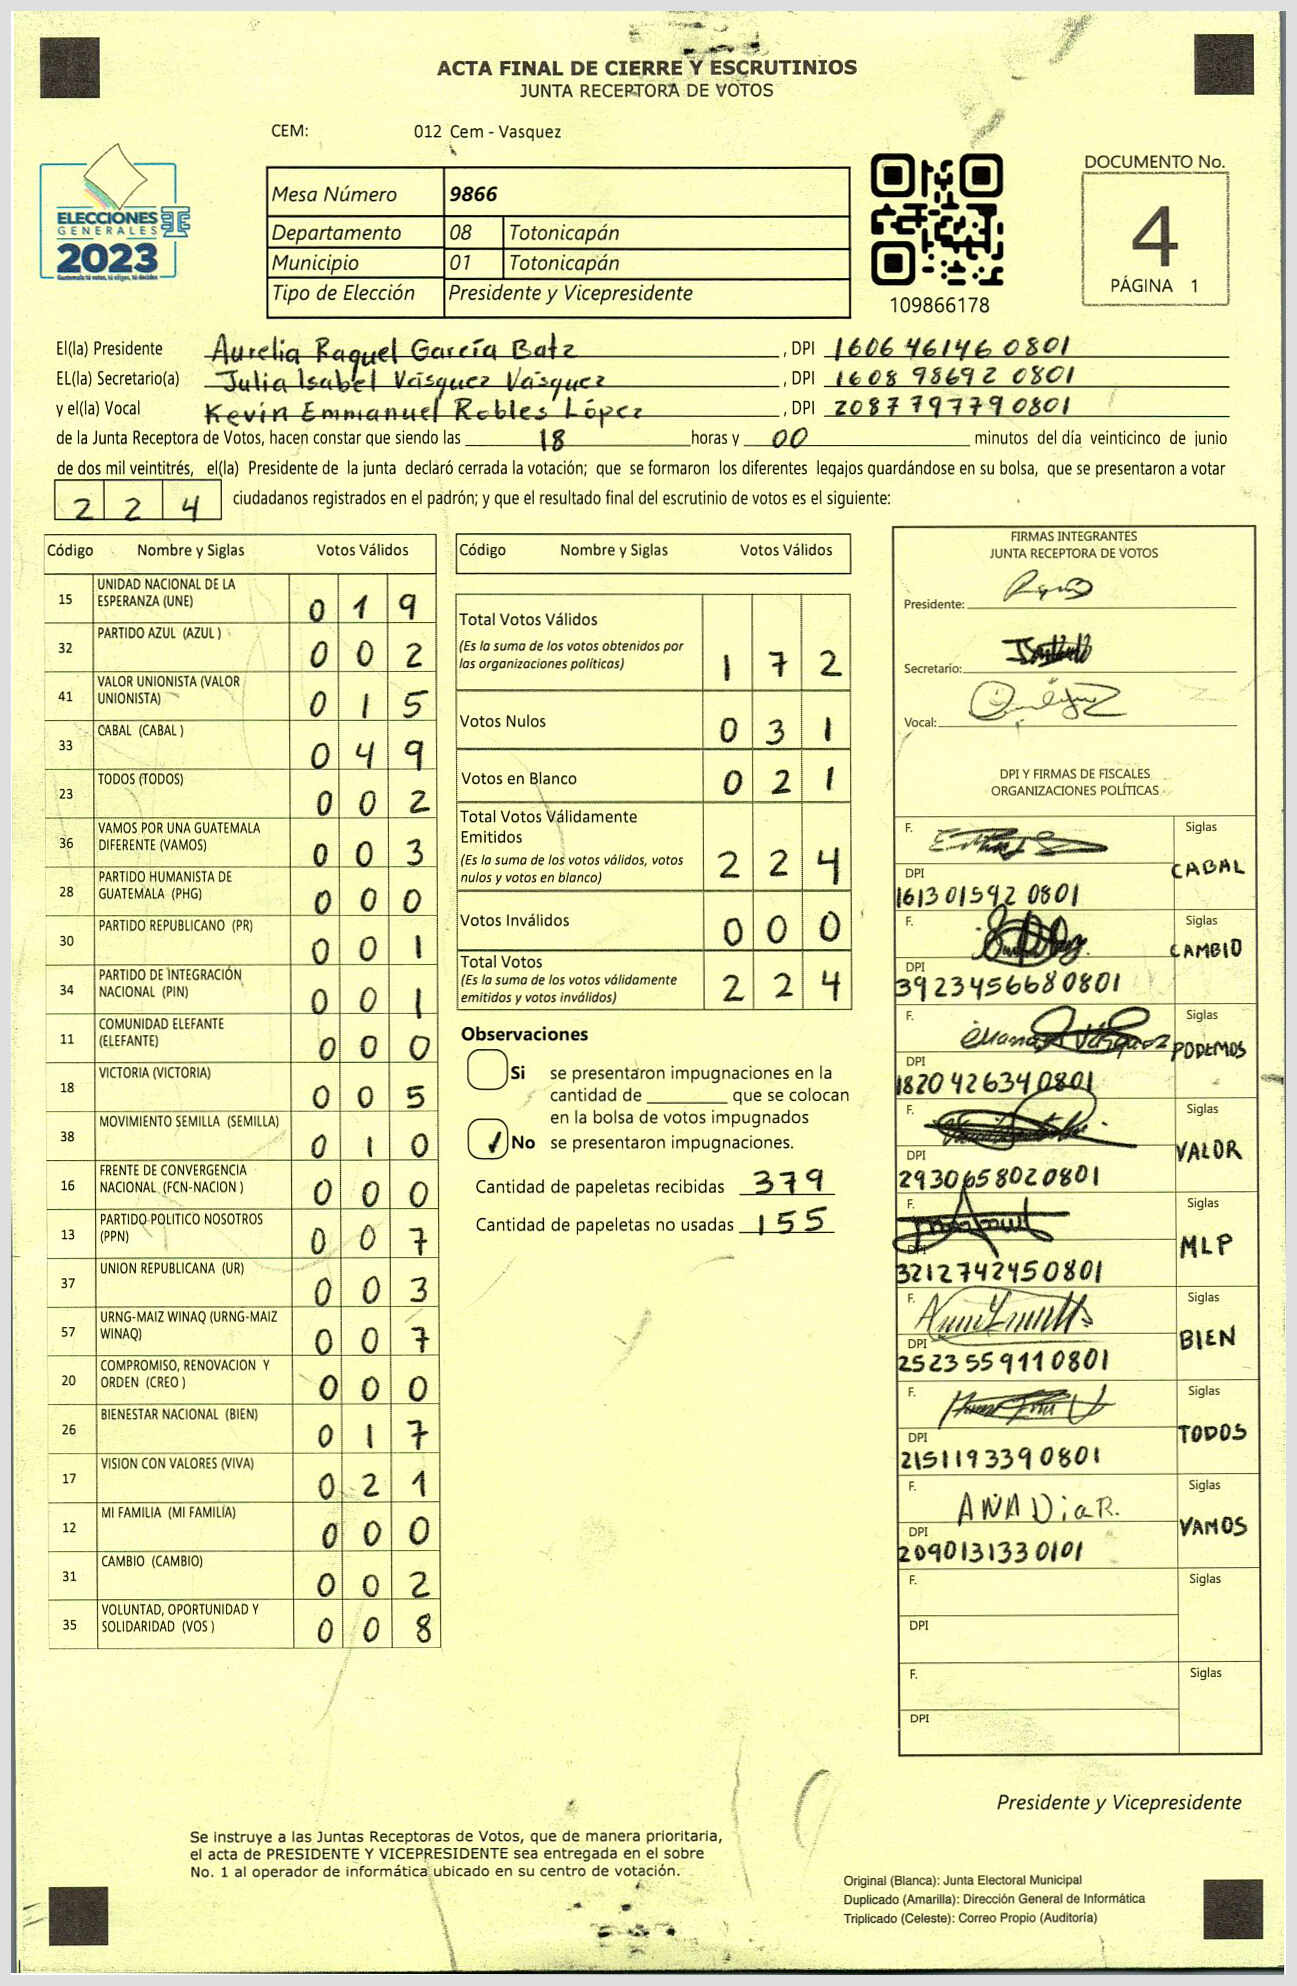 ACTA FINAL DE CIERRE Y ESCRUTINIOS
JUNTA RECEPTORA DE VOTOS
CEM: 012 Cem - Vasquez
ELECCIONES
GENERALES
2023
Guatemala tú votas, tú eliges, tú decides
Mesa Número 9866
Departamento 08 Totonicapán
Municipio 01 Totonicapán
Tipo de Elección Presidente y Vicepresidente
109866178
DOCUMENTO No.
4
PÁGINA 1
El(la) Presidente Aurelia Raquel García Batz, DPI 1606 46146 0801
EL(la) Secretario(a) Julia Isabel Vásquez Vásquez, DPI 1608 98692 0801
y el(la) Vocal Kevin Emmanuel Robles López, DPI 2087797790801
de la Junta Receptora de Votos, hacen constar que siendo las 18 horas y 00 minutos del día veinticinco de junio
de dos mil veintitrés, el(la) Presidente de la junta declaró cerrada la votación; que se formaron los diferentes legajos guardándose en su bolsa, que se presentaron a votar
2 2 4 ciudadanos registrados en el padrón; y que el resultado final del escrutinio de votos es el siguiente:
Código Nombre y Siglas Votos Válidos
15 UNIDAD NACIONAL DE LA ESPERANZA (UNE) 0 1 9
32 PARTIDO AZUL (AZUL ) 0 0 2
41 VALOR UNIONISTA (VALOR UNIONISTA) 0 1 5
33 CABAL (CABAL ) 0 4 9
23 TODOS (TODOS) 0 0 2
36 VAMOS POR UNA GUATEMALA DIFERENTE (VAMOS) 0 0 3
28 PARTIDO HUMANISTA DE GUATEMALA (PHG) 0 0 0
30 PARTIDO REPUBLICANO (PR) 0 0 1
34 PARTIDO DE INTEGRACIÓN NACIONAL (PIN) 0 0 1
11 COMUNIDAD ELEFANTE (ELEFANTE) 0 0 0
18 VICTORIA (VICTORIA) 0 0 5
38 MOVIMIENTO SEMILLA (SEMILLA) 0 1 0
16 FRENTE DE CONVERGENCIA NACIONAL (FCN-NACION ) 0 0 0
13 PARTIDO POLITICO NOSOTROS (PPN) 0 0 7
37 UNION REPUBLICANA (UR) 0 0 3
57 URNG-MAIZ WINAQ (URNG-MAIZ WINAQ) 0 0 7
20 COMPROMISO, RENOVACION Y ORDEN (CREO ) 0 0 0
26 BIENESTAR NACIONAL (BIEN) 0 1 7
17 VISION CON VALORES (VIVA) 0 2 1
12 MI FAMILIA (MI FAMILIA) 0 0 0
31 CAMBIO (CAMBIO) 0 0 2
35 VOLUNTAD, OPORTUNIDAD Y SOLIDARIDAD (VOS ) 0 0 8
Código Nombre y Siglas Votos Válidos
Total Votos Válidos 1 7 2
(Es la suma de los votos obtenidos por
las organizaciones políticas)
Votos Nulos 0 3 1
Votos en Blanco 0 2 1
Total Votos Válidamente
Emitidos 2 2 4
(Es la suma de los votos válidos, votos
nulos y votos en blanco)
Votos Inválidos 0 0 0
Total Votos 2 2 4
(Es la suma de los votos válidamente
emitidos y votos inválidos)
Observaciones
Si se presentaron impugnaciones en la
cantidad de ________ que se colocan
en la bolsa de votos impugnados
✓ No se presentaron impugnaciones.
Cantidad de papeletas recibidas 379
Cantidad de papeletas no usadas 155
FIRMAS INTEGRANTES
JUNTA RECEPTORA DE VOTOS
Presidente:
Secretario:
Vocal:
DPI Y FIRMAS DE FISCALES
ORGANIZACIONES POLÍTICAS
F. Siglas CABAL
DPI 161301592 0801
F. Siglas CAMBIO
DPI 3923456680801
F. Siglas PODEMOS
DPI 1820426340801
F. Siglas VALOR
DPI 2930658020801
F. Siglas MLP
DPI 3212742450801
F. Siglas BIEN
DPI 2523559110801
F. Siglas TODOS
DPI 2151193390801
F. ANA Dia R. Siglas VAMOS
DPI 2090131330101
F. Siglas
DPI
F. Siglas
DPI
Presidente y Vicepresidente
Se instruye a las Juntas Receptoras de Votos, que de manera prioritaria,
el acta de PRESIDENTE Y VICEPRESIDENTE sea entregada en el sobre
No. 1 al operador de informática ubicado en su centro de votación.
Original (Blanca): Junta Electoral Municipal
Duplicado (Amarilla): Dirección General de Informática
Triplicado (Celeste): Correo Propio (Auditoría)